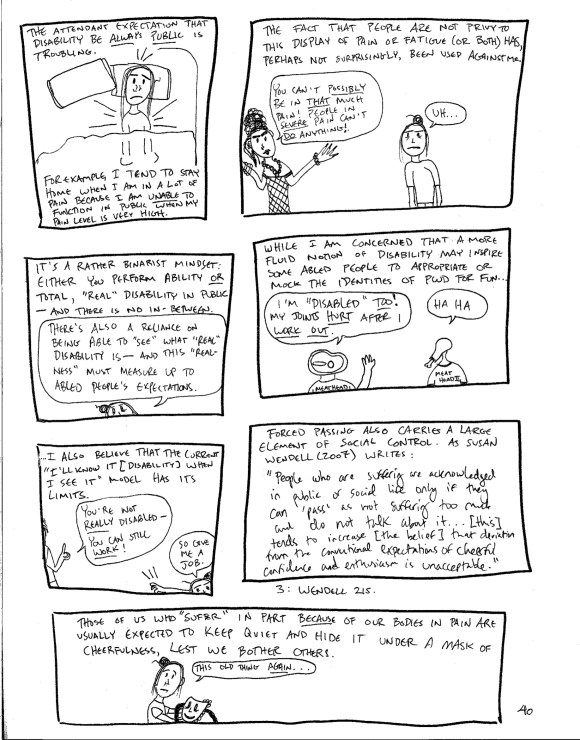 THE ATTENDANT EXPECTATION THAT
DISABILITY BE ALWAYS PUBLIC IS
TROUBLING.
FOR EXAMPLE, I TEND TO STAY
HOME WHEN I AM IN A LOT OF
PAIN BECAUSE I AM UNABLE TO
FUNCTION IN PUBLIC WHEN MY
PAIN LEVEL IS VERY HIGH.
THE FACT THAT PEOPLE ARE NOT PRIVY TO
THIS DISPLAY OF PAIN OR FATIGUE (OR BOTH) HAS,
PERHAPS NOT SURPRISINGLY, BEEN USED AGAINST ME.
YOU CAN'T POSSIBLY
BE IN THAT MUCH
PAIN! PEOPLE IN
SEVERE PAIN CAN'T
DO ANYTHING!
UH...
IT'S A RATHER BINARIST MINDSET:
EITHER YOU PERFORM ABILITY OR
TOTAL, "REAL" DISABILITY IN PUBLIC
— AND THERE IS NO IN-BETWEEN.
THERE'S ALSO A RELIANCE ON
BEING ABLE TO "SEE" WHAT "REAL"
DISABILITY IS — AND THIS "REAL-
NESS" MUST MEASURE UP TO
ABLED PEOPLE'S EXPECTATIONS.
WHILE I AM CONCERNED THAT A MORE
FLUID NOTION OF DISABILITY MAY INSPIRE
SOME ABLED PEOPLE TO APPROPRIATE OR
MOCK THE IDENTITIES OF PWD FOR FUN...
I'M "DISABLED" TOO!
MY JOINTS HURT AFTER I
WORK OUT.
HA HA
MEATHEAD
MEAT
HEAD II
...I ALSO BELIEVE THAT THE CURRENT
"I'LL KNOW IT [DISABILITY] WHEN
I SEE IT" MODEL HAS ITS
LIMITS.
YOU'RE NOT
REALLY DISABLED —
YOU CAN STILL
WORK!
SO GIVE
ME A
JOB.
FORCED PASSING ALSO CARRIES A LARGE
ELEMENT OF SOCIAL CONTROL. AS SUSAN
WENDELL (2007) WRITES:
"People who are suffering are acknowledged
in public or social life only if they
can 'pass' as not suffering too much
and do not talk about it... [this]
tends to increase [the belief] that deviation
from the conventional expectations of cheerful
confidence and enthusiasm is unacceptable."
3: WENDELL 215.
THOSE OF US WHO "SUFFER" IN PART BECAUSE OF OUR BODIES IN PAIN ARE
USUALLY EXPECTED TO KEEP QUIET AND HIDE IT UNDER A MASK OF
CHEERFULNESS, LEST WE BOTHER OTHERS.
THIS OLD THING AGAIN...
40